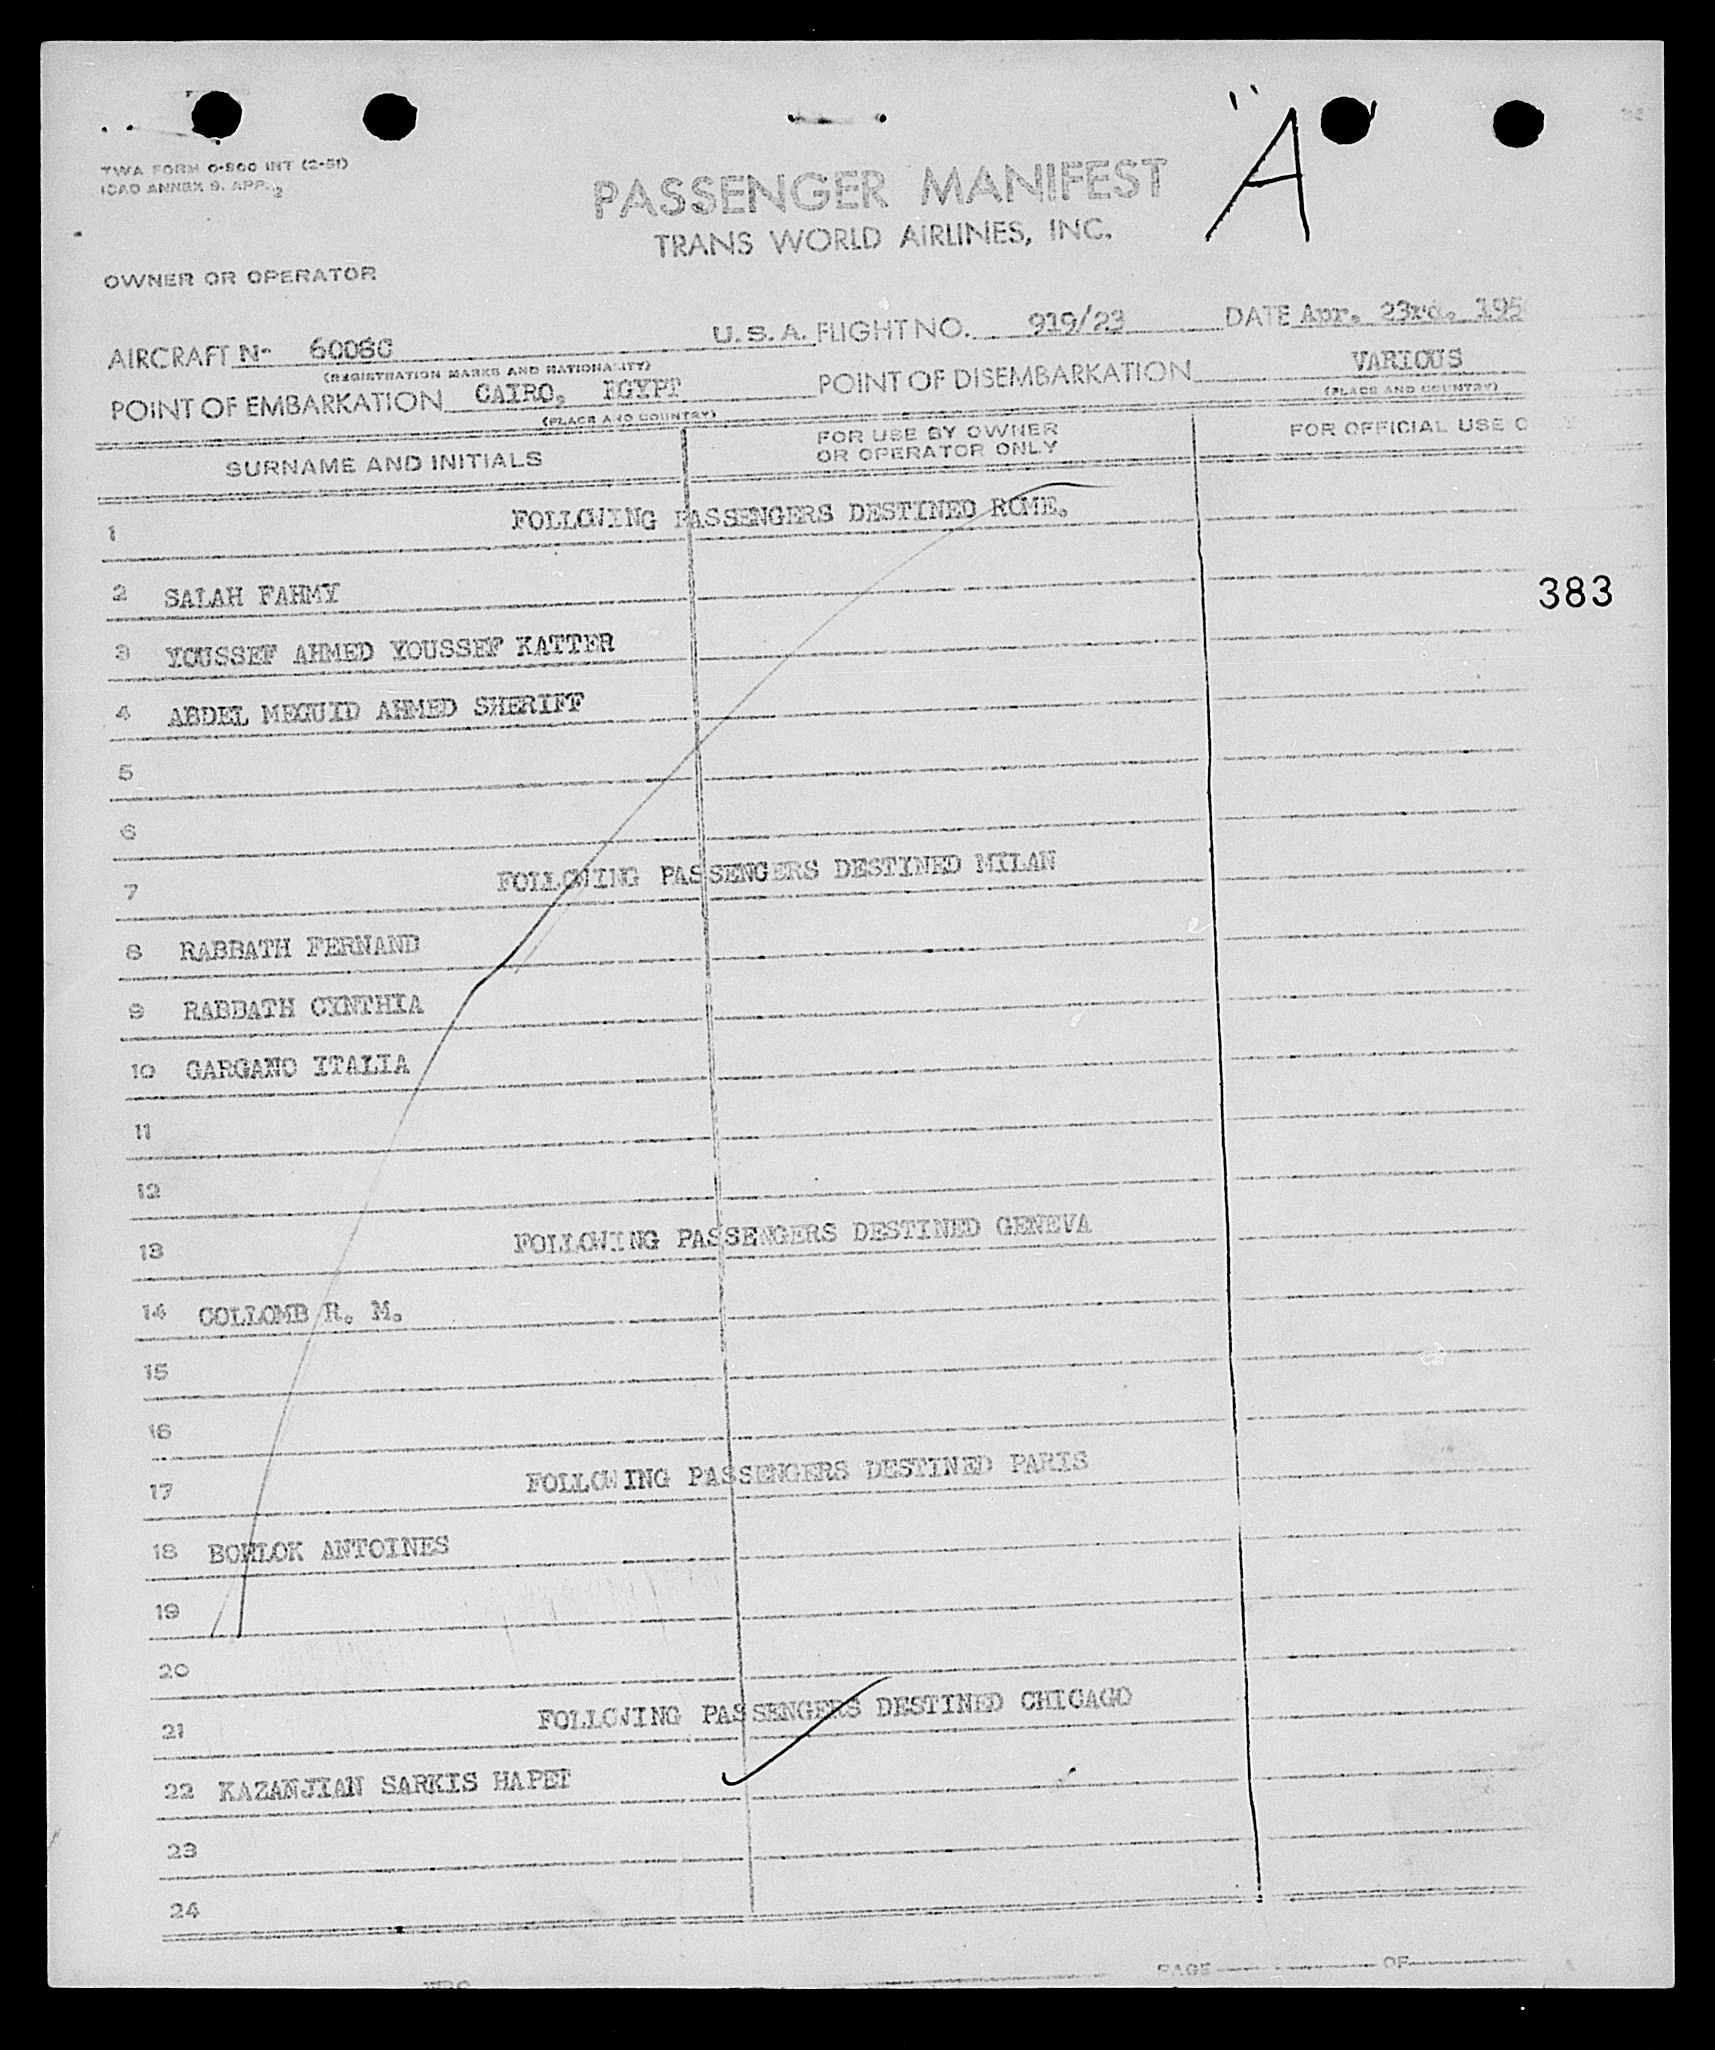 "A"
TWA FORM O-800 INT (2-51)
ICAO ANNEX 9, APP. 2
PASSENGER MANIFEST
TRANS WORLD AIRLINES, INC.
OWNER OR OPERATOR
AIRCRAFT N- 6008C U.S.A. FLIGHT NO. 919/23 DATE Apr. 23rd, 195
(REGISTRATION MARKS AND NATIONALITY)
POINT OF EMBARKATION CAIRO, EGYPT POINT OF DISEMBARKATION VARIOUS
(PLACE AND COUNTRY) (PLACE AND COUNTRY)
SURNAME AND INITIALS FOR USE BY OWNER OR OPERATOR ONLY FOR OFFICIAL USE O
1 FOLLOWING PASSENGERS DESTINED ROME.
2 SALAH FAHMY
383
3 YOUSSEF AHMED YOUSSEF KATTER
4 ABDEL MEGUID AHMED SHERIFF
5
6
7 FOLLOWING PASSENGERS DESTINED MILAN
8 RABBATH FERNAND
9 RABBATH CYNTHIA
10 GARGANO ITALIA
11
12
13 FOLLOWING PASSENGERS DESTINED GENEVA
14 COLLOMB R. M.
15
16
17 FOLLOWING PASSENGERS DESTINED PARIS
18 BOHLOK ANTOINES
19
20
21 FOLLOWING PASSENGERS DESTINED CHICAGO
22 KAZANJIAN SARKIS HAPET
23
24
PAGE OF